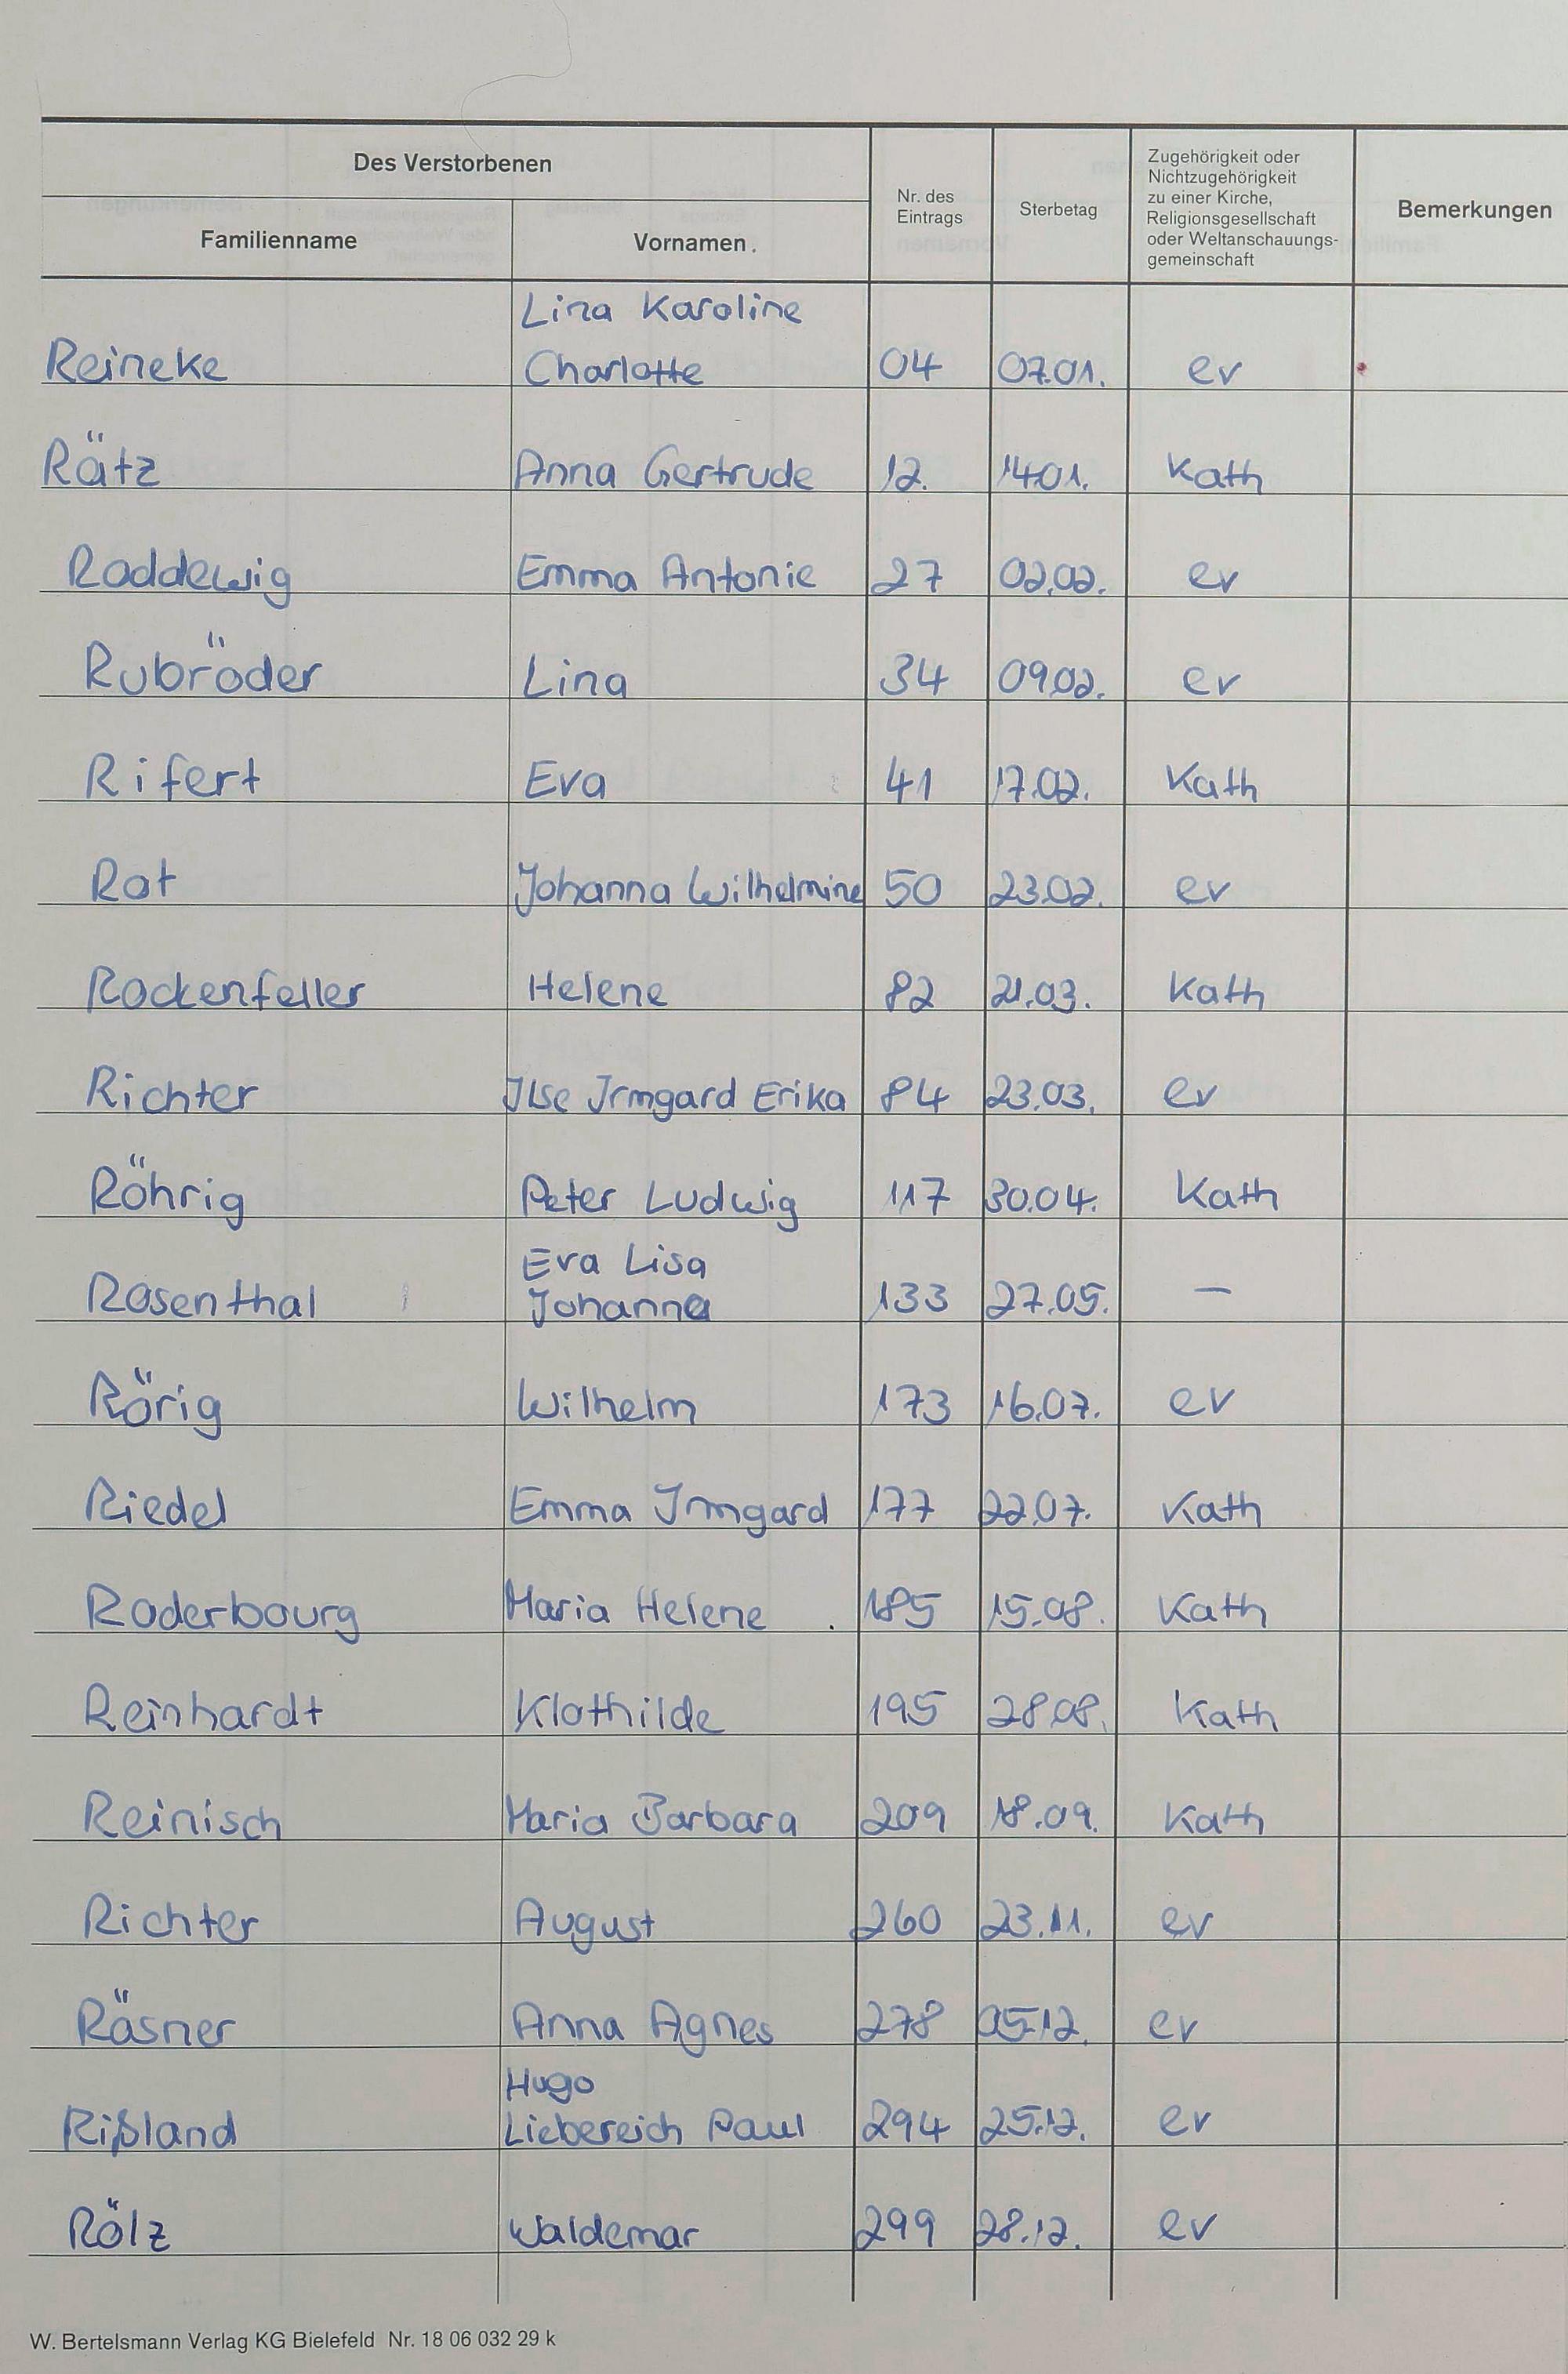 Des Verstorbenen
Familienname
Vornamen.
Nr. des
Eintrags
Sterbetag
Zugehörigkeit oder
Nichtzugehörigkeit
zu einer Kirche,
Religionsgesellschaft
oder Weltanschauungs-
gemeinschaft
Bemerkungen
Lina Karoline
Reineke Charlotte 04 07.01. ev
Rätz Anna Gertrude 12. 14.01. Kath
Roddewig Emma Antonie 27 02.02. ev
Rubröder Lina 34 09.02. ev
Rifert Eva 41 17.02. Kath
Rot Johanna Wilhelmine 50 23.02. ev
Rockenfeller Helene 82 21.03. Kath
Richter Ilse Irmgard Erika 84 23.03. ev
Röhrig Peter Ludwig 117 30.04. Kath
Eva Lisa
Rosenthal Johanna 133 27.05. —
Rörig Wilhelm 173 16.07. ev
Riedel Emma Irmgard 177 22.07. Kath
Roderbourg Maria Helene 185 15.08. Kath
Reinhardt Klothilde 195 28.08. Kath
Reinisch Maria Barbara 209 18.09. Kath
Richter August 260 23.11. ev
Räsner Anna Agnes 278 05.12. ev
Hugo
Rißland Liebereich Paul 294 25.12. ev
Rölz Waldemar 299 28.12. ev
W. Bertelsmann Verlag KG Bielefeld Nr. 18 06 032 29 k